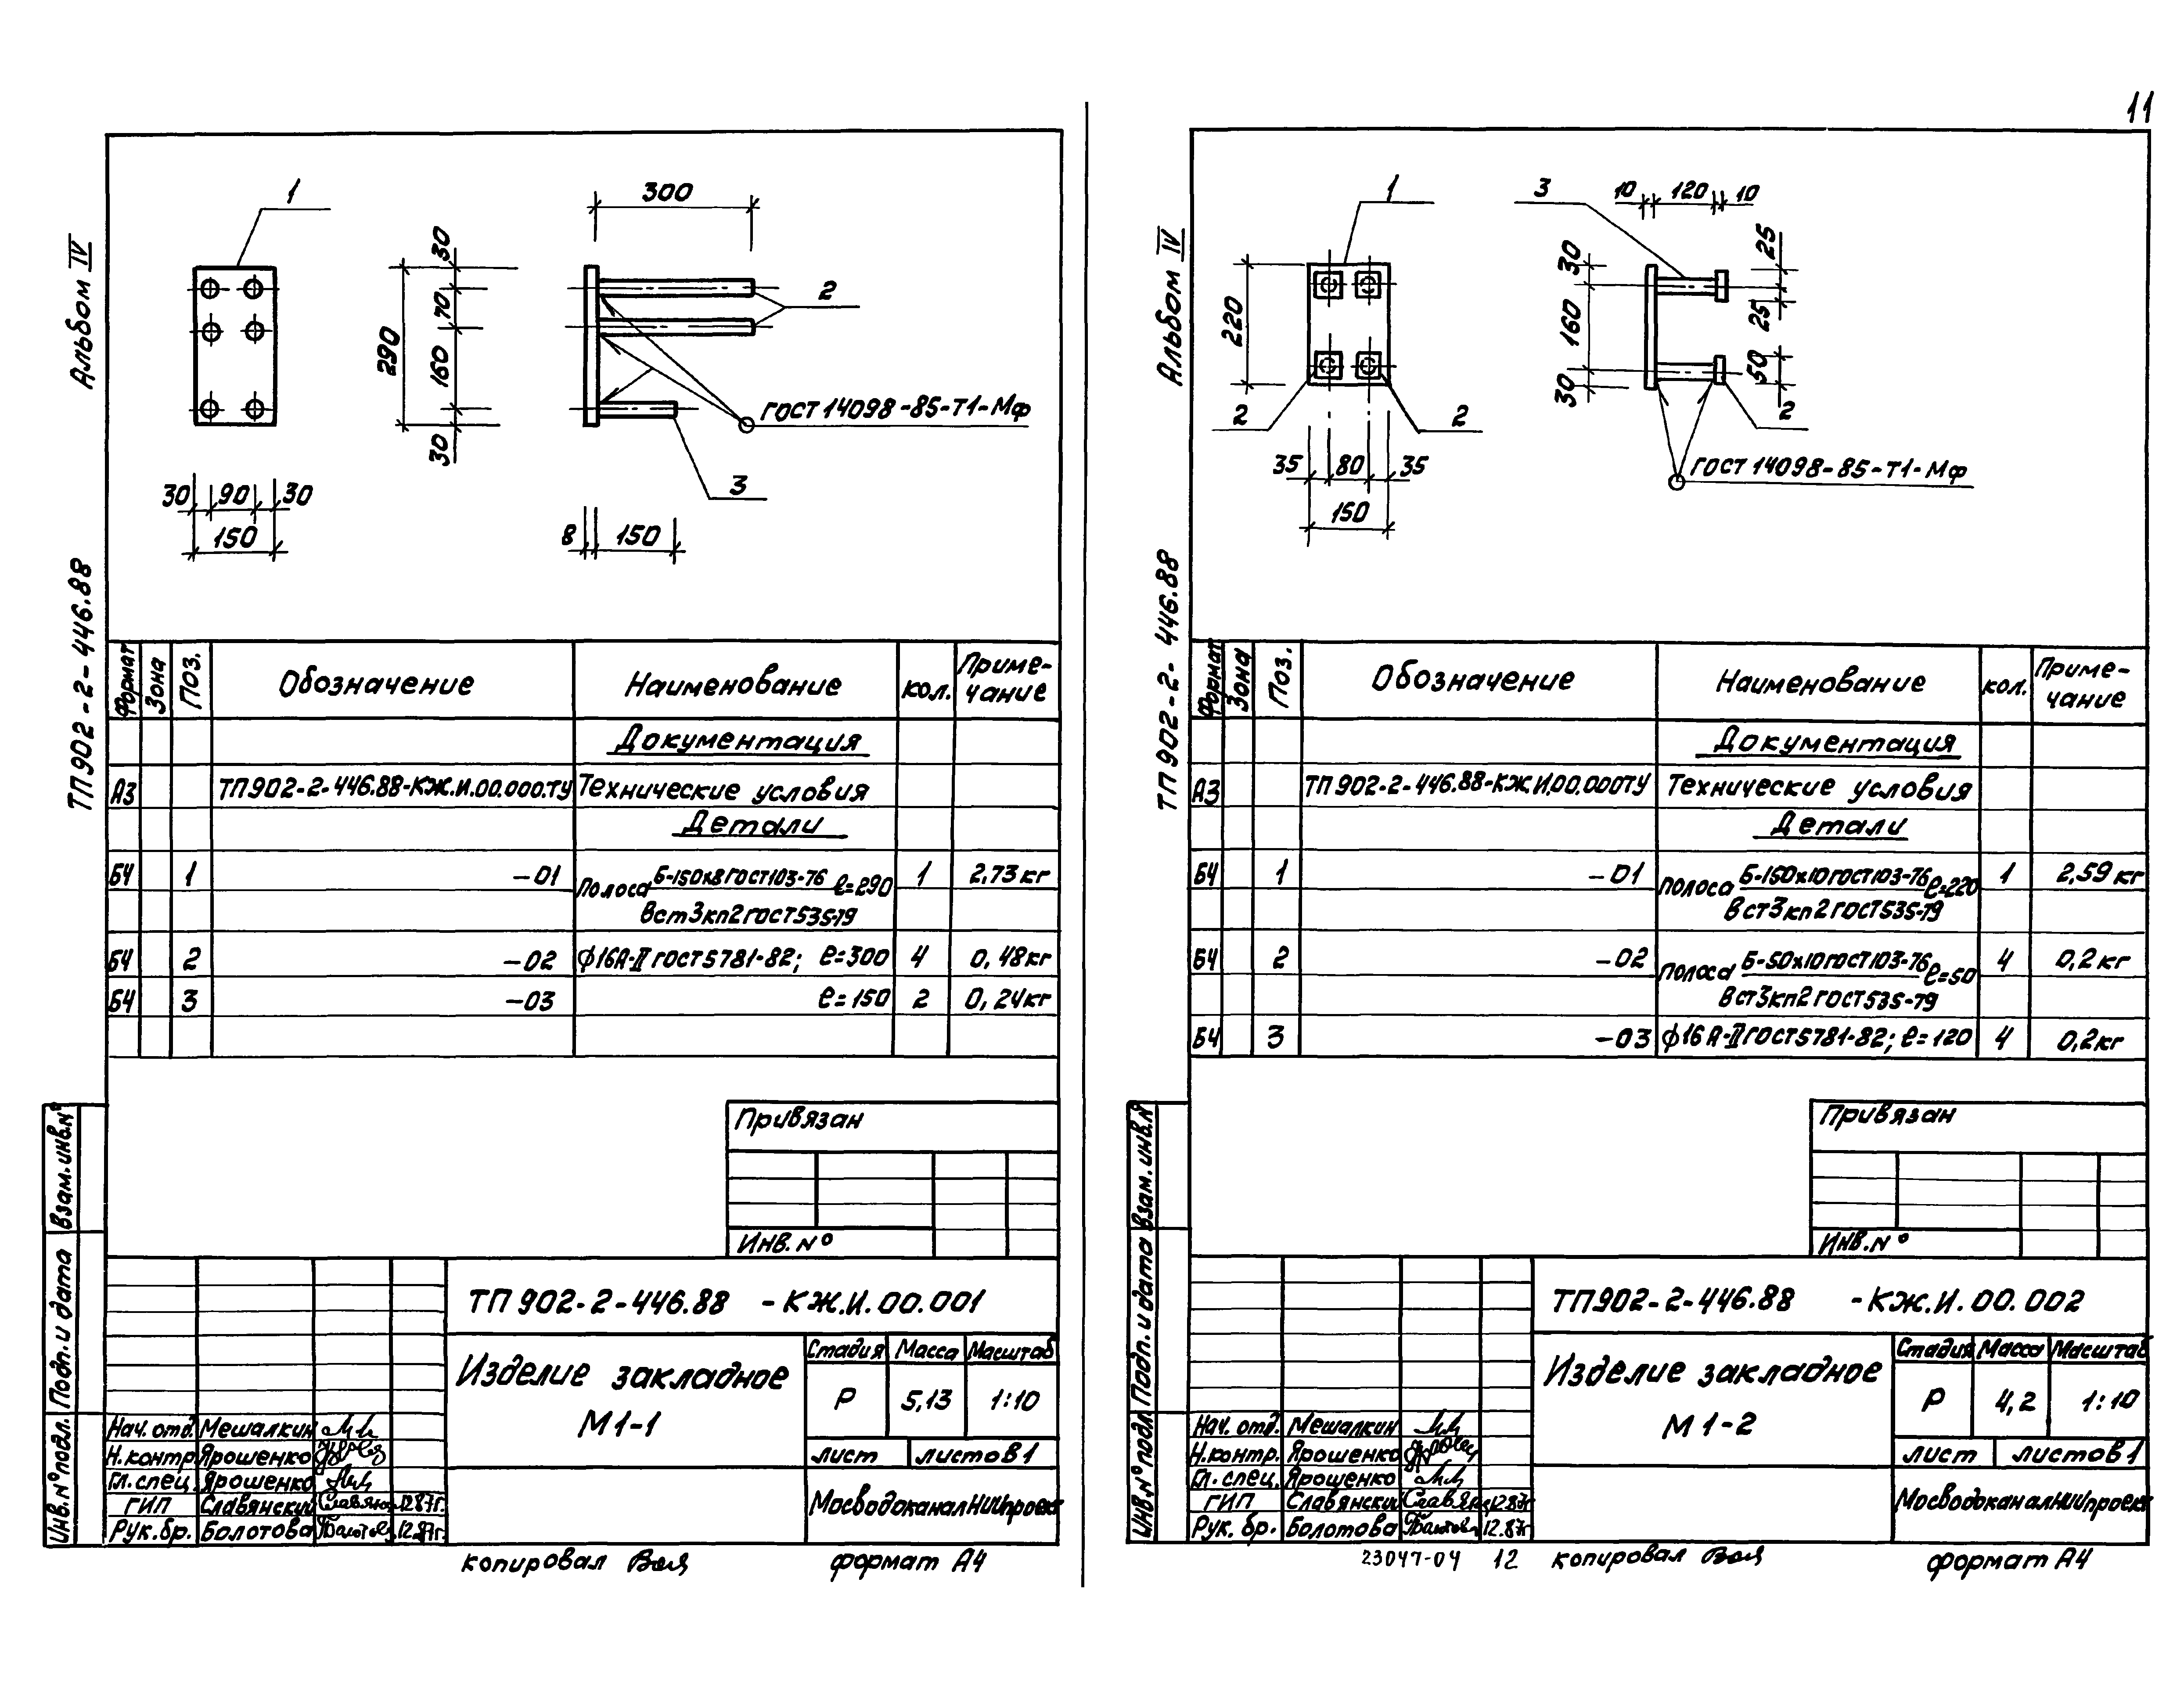 11
Альбом IV
ТП 902-2-446.88
1
300
30
70
290
160
30
2
ГОСТ 14098-85-Т1-Мф
3
30 90 30
150
8 150
Формат Зона Поз. Обозначение Наименование кол. Примечание
Документация
А3 ТП902-2-446.88-КЖ.И.00.000.ТУ Технические условия
Детали
БЧ 1 -01 Полоса Б-150х8 ГОСТ 103-76 ℓ=290 1 2,73 кг
Вст3кп2 ГОСТ 535-79
БЧ 2 -02 ϕ16А-II ГОСТ 5781-82; ℓ=300 4 0,48кг
БЧ 3 -03 ℓ=150 2 0,24кг
Привязан
Инв.№
Взам.инв.№
Подп. и дата
Инв.№ подл.
ТП 902-2-446.88 -КЖ.И.00.001
Изделие закладное
М1-1
Стадия Масса Масштаб
Р 5,13 1:10
лист листов 1
МосводоканалНИИпроект
Нач. отд. Мешалкин
Н.контр. Ярошенко
Гл.спец. Ярошенко
ГИП Славянский 12.87г.
Рук.бр. Болотова 12.87г.
копировал
формат А4
Альбом IV
ТП902-2-446.88
1
220
2
2
35 80 35
150
3
10 120 10
30
160
30
25
25
50
2
ГОСТ 14098-85-Т1-Мф
Формат Зона Поз. Обозначение Наименование кол. Примечание
Документация
А3 ТП 902-2-446.88-КЖ.И.00.000ТУ Технические условия
Детали
БЧ 1 -01 полоса Б-150х10 ГОСТ 103-76 ℓ=220 1 2,59 кг
Вст3кп2 ГОСТ 535-79
БЧ 2 -02 полоса Б-50х10 ГОСТ 103-76 ℓ=50 4 0,2 кг
Вст3кп2 ГОСТ 535-79
БЧ 3 -03 ϕ16 А-II ГОСТ 5781-82; ℓ=120 4 0,2кг
Привязан
Инв.№
Взам.инв.№
Подп. и дата
Инв.№ подл.
ТП902-2-446.88 -КЖ.И.00.002
Изделие закладное
М1-2
Стадия Масса Масштаб
Р 4,2 1:10
лист листов 1
МосводоканалНИИпроект
Нач. отд. Мешалкин
Н.контр. Ярошенко
Гл. спец. Ярошенко
ГИП Славянский 12.87г
Рук. бр. Болотова 12.87г
23047-04 12
копировал
формат А4